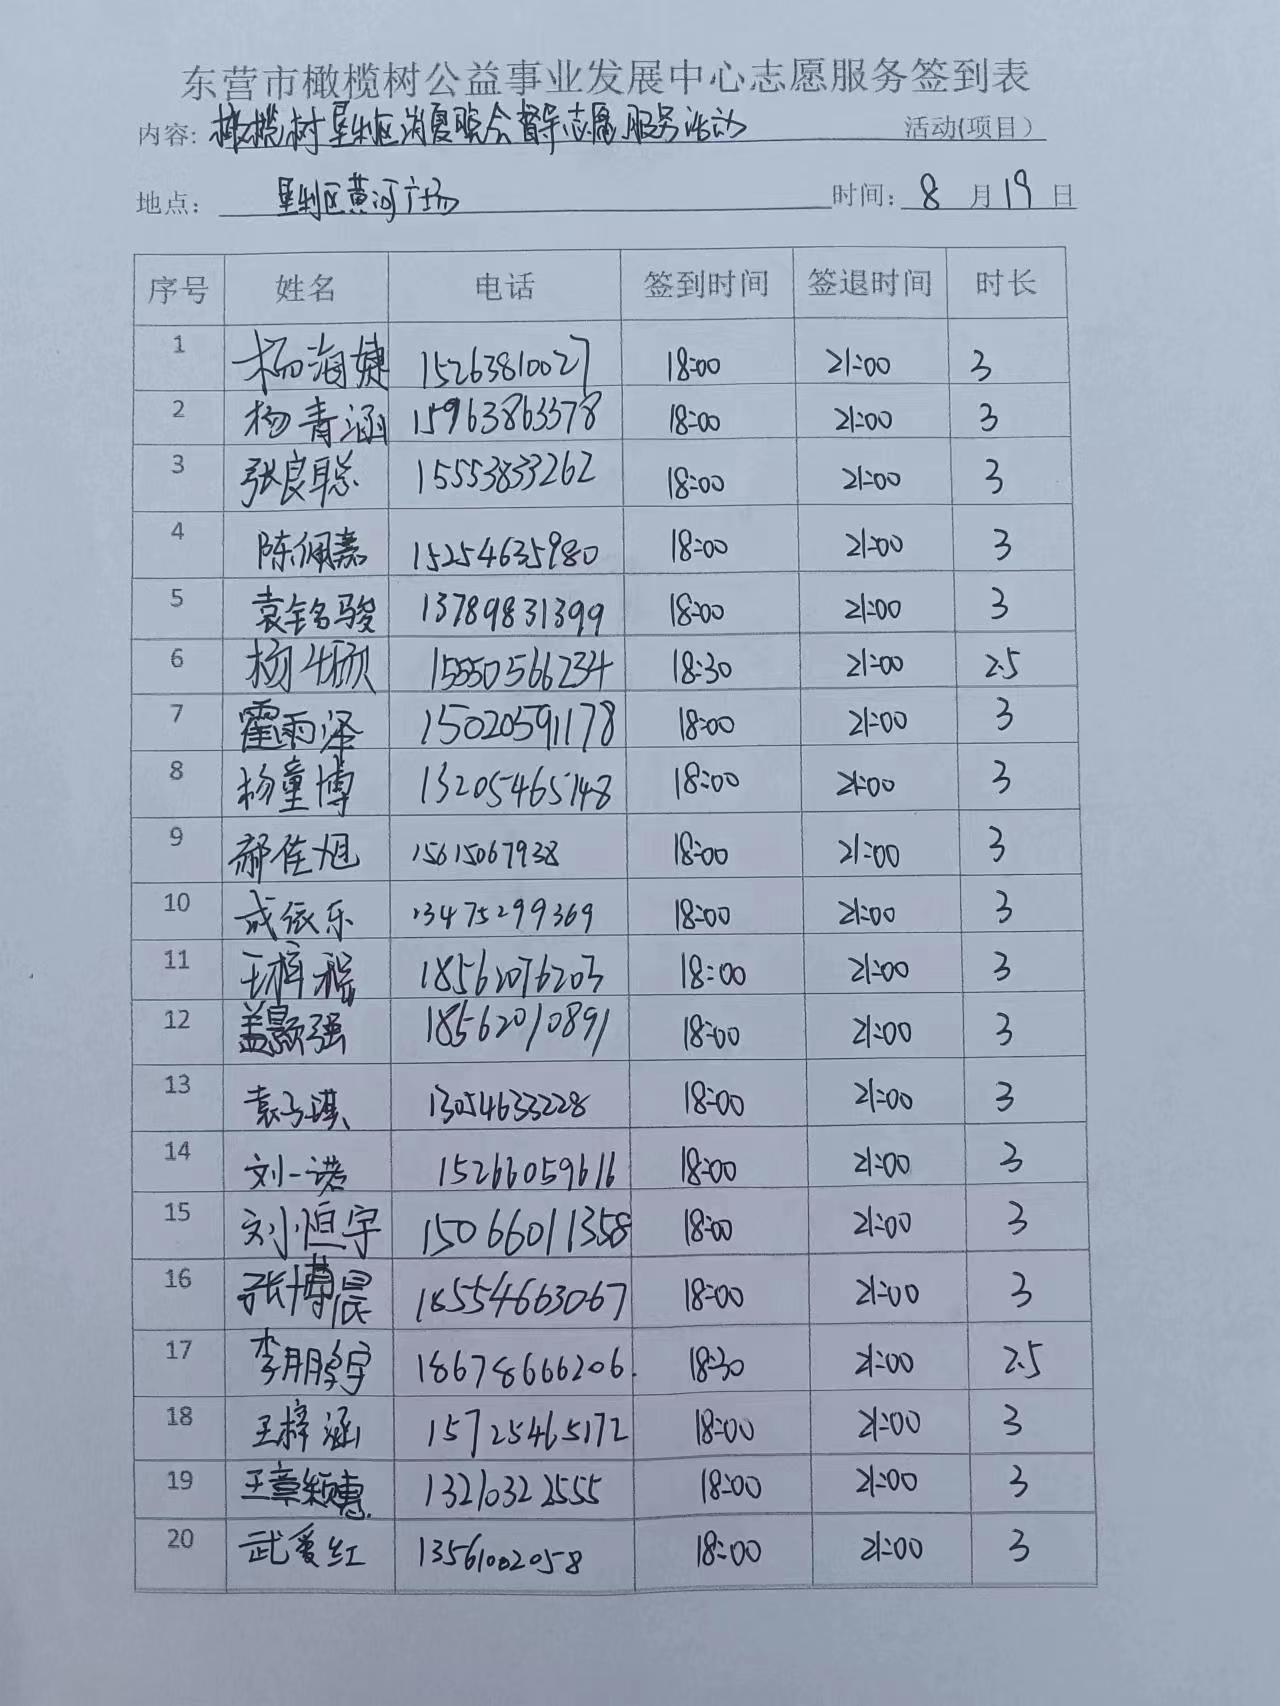 东营市橄榄树公益事业发展中心志愿服务签到表
内容: 橄榄树垦利区消夏晚会督导志愿服务活动 活动(项目)
地点: 垦利区黄河广场 时间: 8 月 19 日
序号 姓名 电话 签到时间 签退时间 时长
1 杨海婕 15263810027 18:00 21:00 3
2 杨青涵 15963863378 18:00 21:00 3
3 张良聪 15553833262 18:00 21:00 3
4 陈佩嘉 15254635980 18:00 21:00 3
5 袁铭骏 13789831399 18:00 21:00 3
6 15550566234 18:30 21:00 2.5
7 霍雨泽 15020591178 18:00 21:00 3
8 杨童博 13205465748 18:00 21:00 3
9 郝佳旭 15615067938 18:00 21:00 3
10 成依乐 13475299369 18:00 21:00 3
11 王梓 18562076203 18:00 21:00 3
12 盖颢强 18562010891 18:00 21:00 3
13 袁子琪 13054633228 18:00 21:00 3
14 刘一诺 15266059616 18:00 21:00 3
15 刘恒宇 15066011358 18:00 21:00 3
16 张博晨 18554663067 18:00 21:00 3
17 李鹏宇 18678666206. 18:30 21:00 2.5
18 王梓涵 15725465172 18:00 21:00 3
19 王章颖惠 13210322555 18:00 21:00 3
20 武爱红 13561002058 18:00 21:00 3